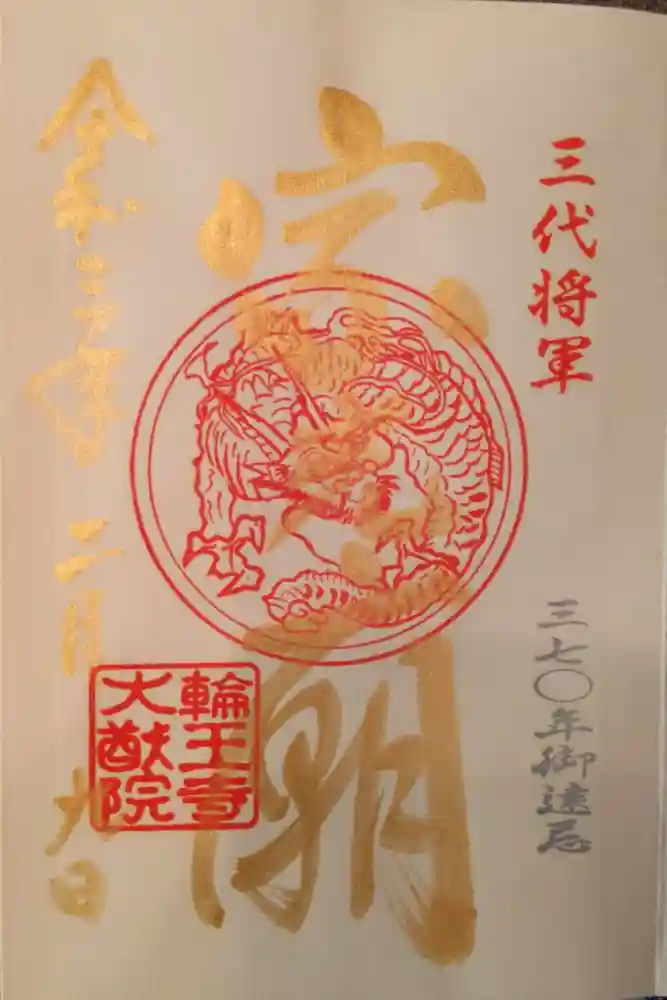 三代将軍
三七〇年御遠忌
家光廟
輪王寺
大猷院
令和三年二月九日